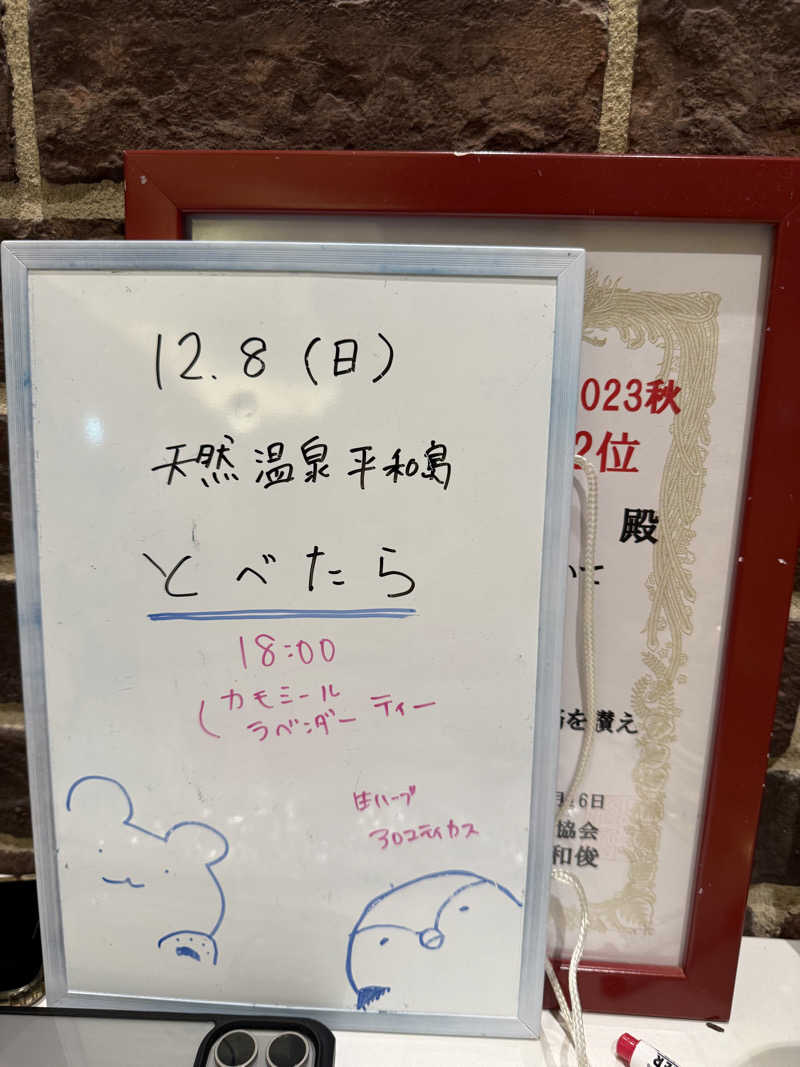 12.8(日)
天然温泉平和島
とべたら
18:00
(カモミール
ラベンダー ティー
生ハーブ
アロマティカス
023秋
2位
殿
を讃え
6日
協会
和俊